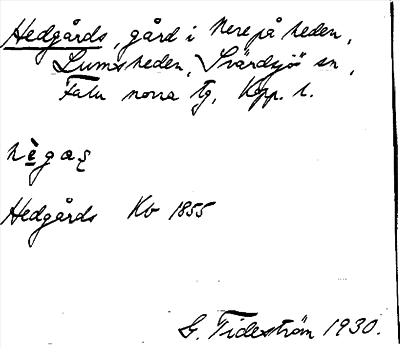 Hedgårds, gård i Nere på heden,
Lumsheden, Svärdsjö sn,
Falu norra tg, Kopp. l.
Hedgårds Kb 1855
G. Tideström 1930.